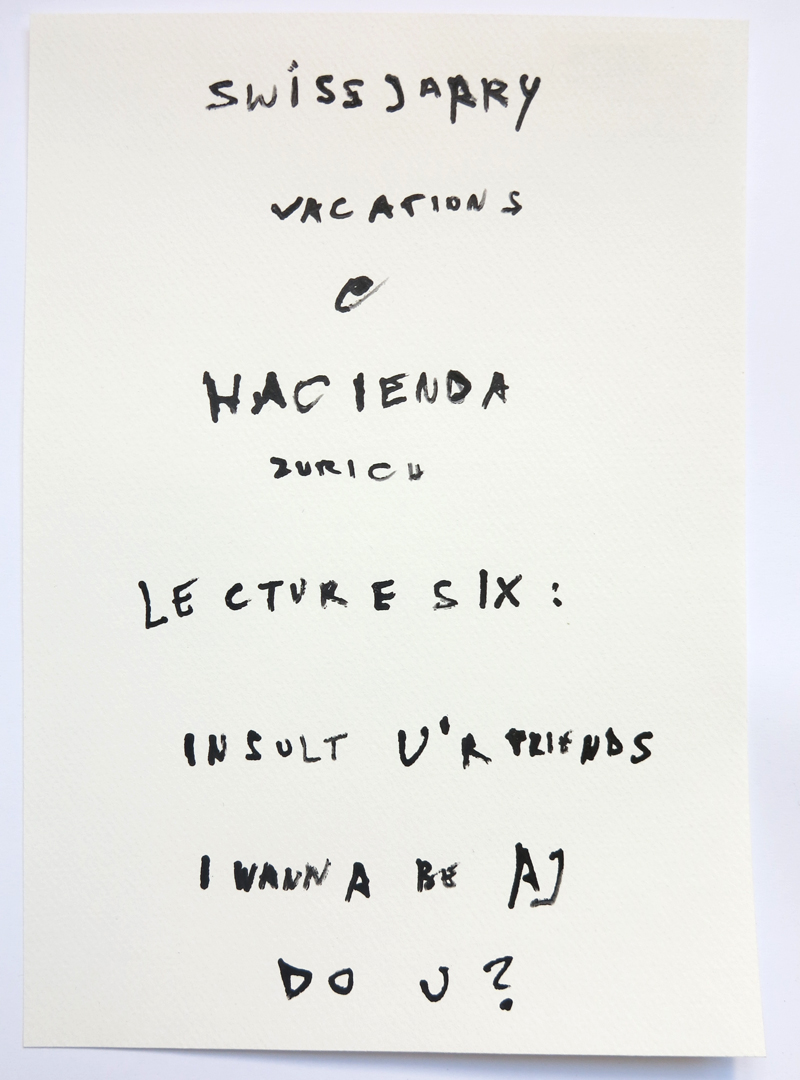 SWiSS JARRY
VACATIONS
@
HACIENDA
ZURICH
LECTURE SIX:
INSULT U'R FRIENDS
I WANNA BE AJ
DO U?